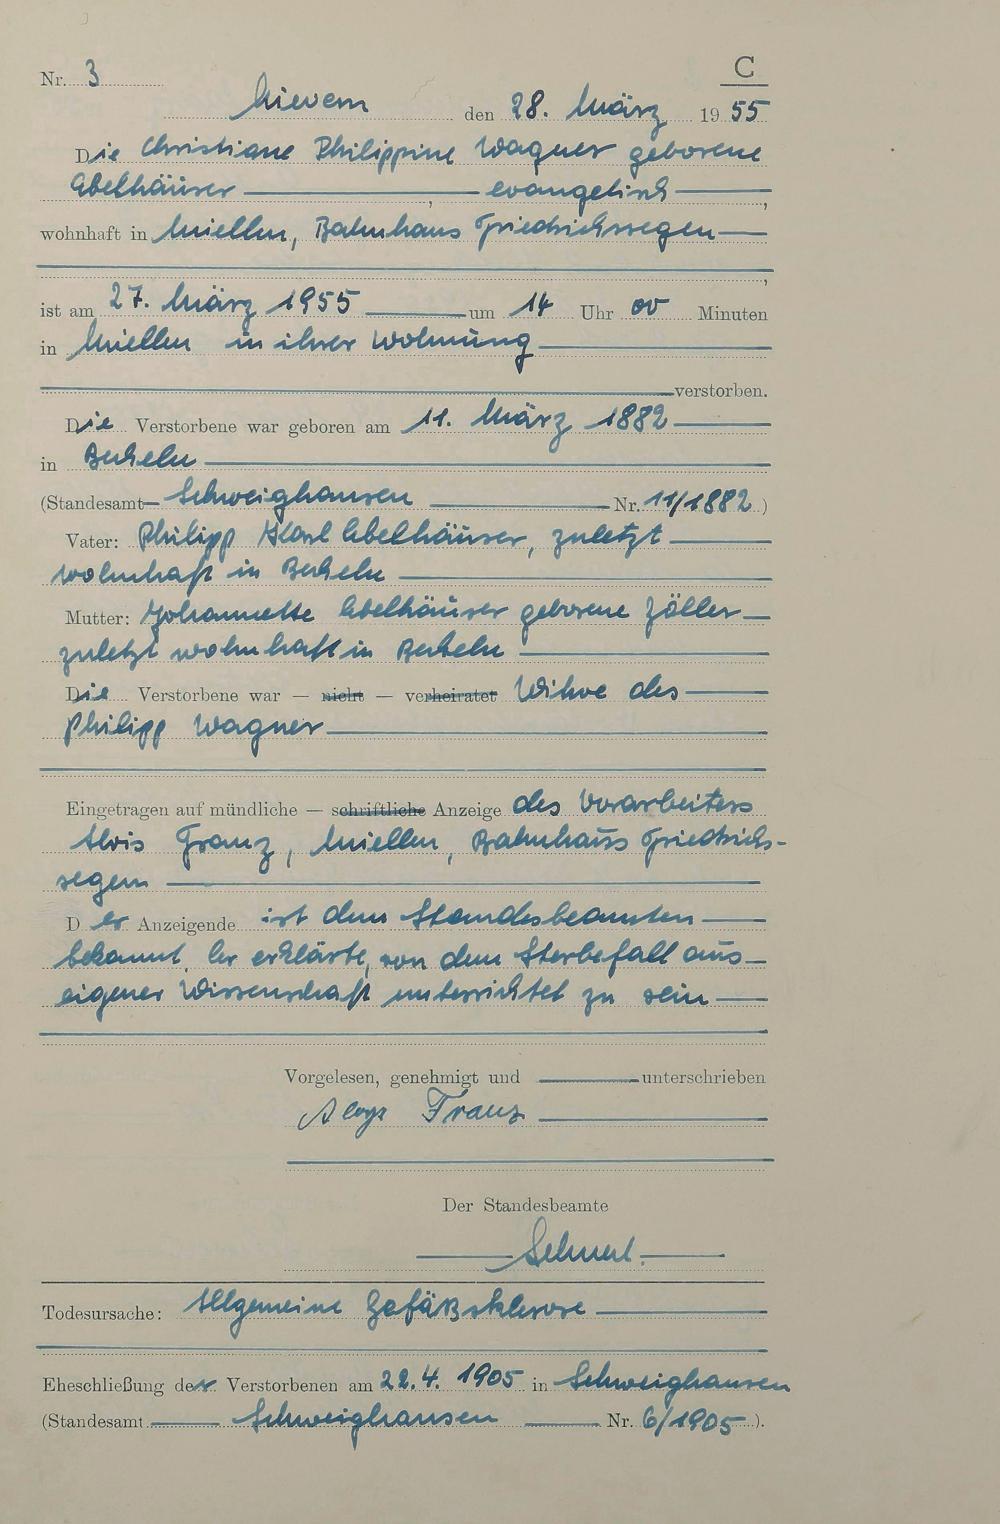 Nr. 3 C
Nievern den 28. März 1955
Die Christiane Philippine Wagner geborene
Ebelhäuser, evangelisch,
wohnhaft in Miellen, Bahnhaus Friedrichssegen
,
ist am 27. März 1955 um 14 Uhr 00 Minuten
in Miellen in ihrer Wohnung
verstorben.
Die Verstorbene war geboren am 11. März 1882
in Becheln
(Standesamt Schweighausen Nr. 11/1882.)
Vater: Philipp Karl Ebelhäuser, zuletzt
wohnhaft in Becheln
Mutter: Johannette Ebelhäuser geborene Zöller
zuletzt wohnhaft in Becheln
Die Verstorbene war — nicht — verheiratet Witwe des
Philipp Wagner
Eingetragen auf mündliche — schriftliche Anzeige des Vorarbeiters
Alois Franz, Miellen, Bahnhaus Friedrichs-
segen
Der Anzeigende ist dem Standesbeamten
bekannt. Er erklärte, von dem Sterbefall aus
eigener Wissenschaft unterrichtet zu sein
Vorgelesen, genehmigt und unterschrieben
Aloys Franz
Der Standesbeamte
Todesursache: Allgemeine Gefäßsklerose
Eheschließung der Verstorbenen am 22.4.1905 in Schweighausen
(Standesamt Schweighausen Nr. 6/1905.).